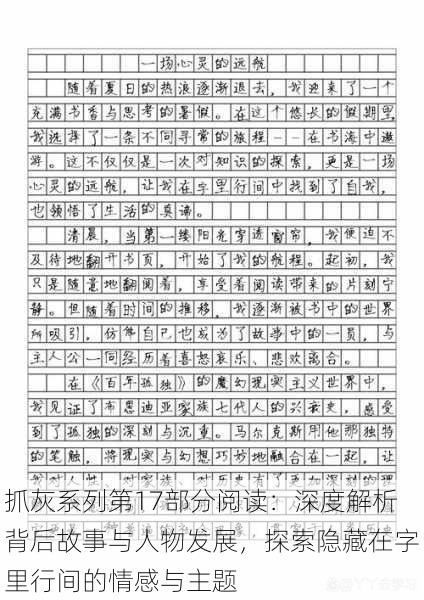 一场心灵的远航
随着夏日的热浪逐渐退去，我迎来了一个
充满书香与思考的暑假。在这个悠长的假期里，
我选择了一条不同寻常的旅程——在书海中遨
游。这不仅仅是一次对知识的探索，更是一场
心灵的远航，让我在字里行间中找到了自我，
也领悟了生活的真谛。
清晨，当第一缕阳光穿透窗帘，我便迫不
及待地翻开书页，开始了我的航程。起初，我
只是随意地翻阅着，享受着阅读带来的片刻宁
静。但随着时间的推移，我逐渐被书中的世界
所吸引，仿佛自己也成为了故事中的一员，与
主人公一同经历着喜怒哀乐、悲欢离合。
在《百年孤独》的魔幻现实主义世界中，
我见证了布恩迪亚家族七代人的兴衰史，感受
到了孤独的深刻与沉重。马尔克斯用他那独特
的笔触，将现实与幻想巧妙地融合在一起，让
抓灰系列第17部分阅读：深度解析
背后故事与人物发展，探索隐藏在字
里行间的情感与主题